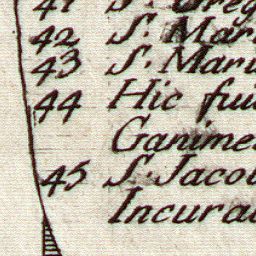 41 S. Greg
42 S. Mar
43 S. Mari
44 Hic fui
Ganime
45 S. Jacob
Incura